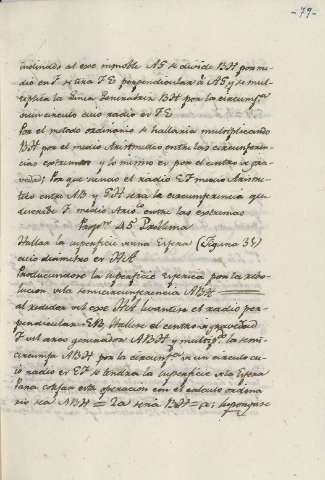 -79-
inclinado al exe inmoble AG se divide BH por me
dio en F se tira FE perpendicular á AG y se mul
tiplica la Linea Generatriz BH por la circumf.ª
un circulo cuio radio es FE
Por el metodo ordinario se hallaria multiplicando
BH por el medio Aritmetico entre las circumferen
cias extremas y lo mismo es por el centro de gra
vedad; Por que siendo el radio EF medio Aritme
tico entre AB y GH será la circumferencia que
describe F medio entre las extremas
45 Problema
Hallar la superficie de una Esfera (Figura 34)
cuio diametro es AH
Produciendose la superficie Esferica por la rebo
lucion de la semicircunferencia ABH
al rededor del exe AH levantese el radio per
pendicular EB. Hallese el centro de gravedad
F del arco generador ABH y la semi
circumf.ª ABH por la circumf.ª de un circulo cu
io radio es EF se tendra la superficie de la Esfera
Para cotejar esta operacion con el calculo ordena
rio sea AH = 2a sera BH = a; supongase